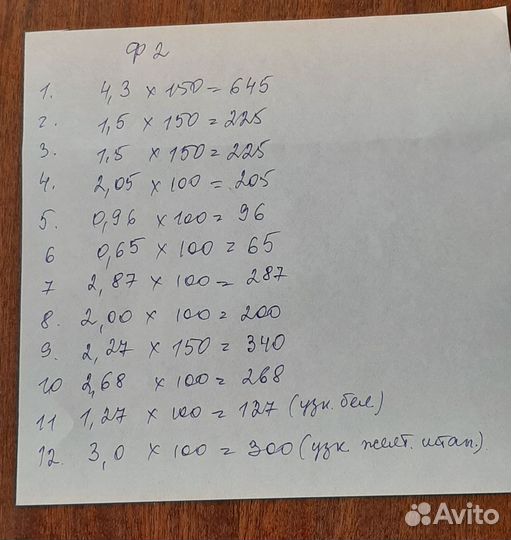 Ф 2
1. 4,3 × 150 = 645
2. 1,5 × 150 = 225
3. 1,5 × 150 = 225
4. 2,05 × 100 = 205
5. 0,96 × 100 = 96
6 0,65 × 100 = 65
7 2,87 × 100 = 287
8. 2,00 × 100 = 200
9. 2,27 × 150 = 340
10 2,68 × 100 = 268
11 1,27 × 100 = 127 (узк. бел.)
12. 3,0 × 100 = 300 (узк желт. итал.)
Avito